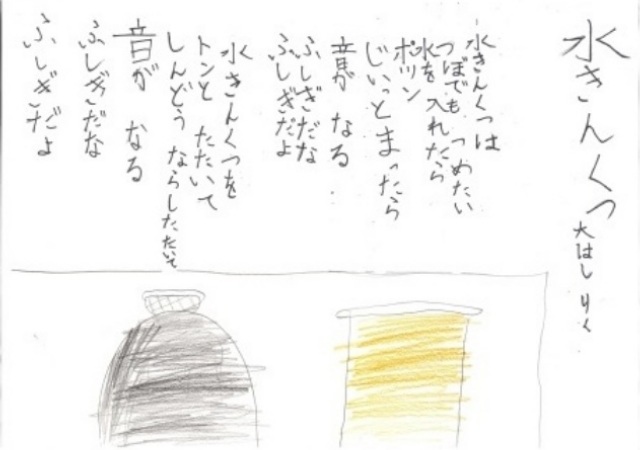 水きんくつ
大はし りく
水きんくつは
つぼでも つめたい
水を 入れたら
ポツン
じいっと まったら
音が なる
ふしぎだな
ふしぎだよ
水きんくつを
トンと たたいて
しんどう ならしたたいて
音が なる
ふしぎだな
ふしぎだよ